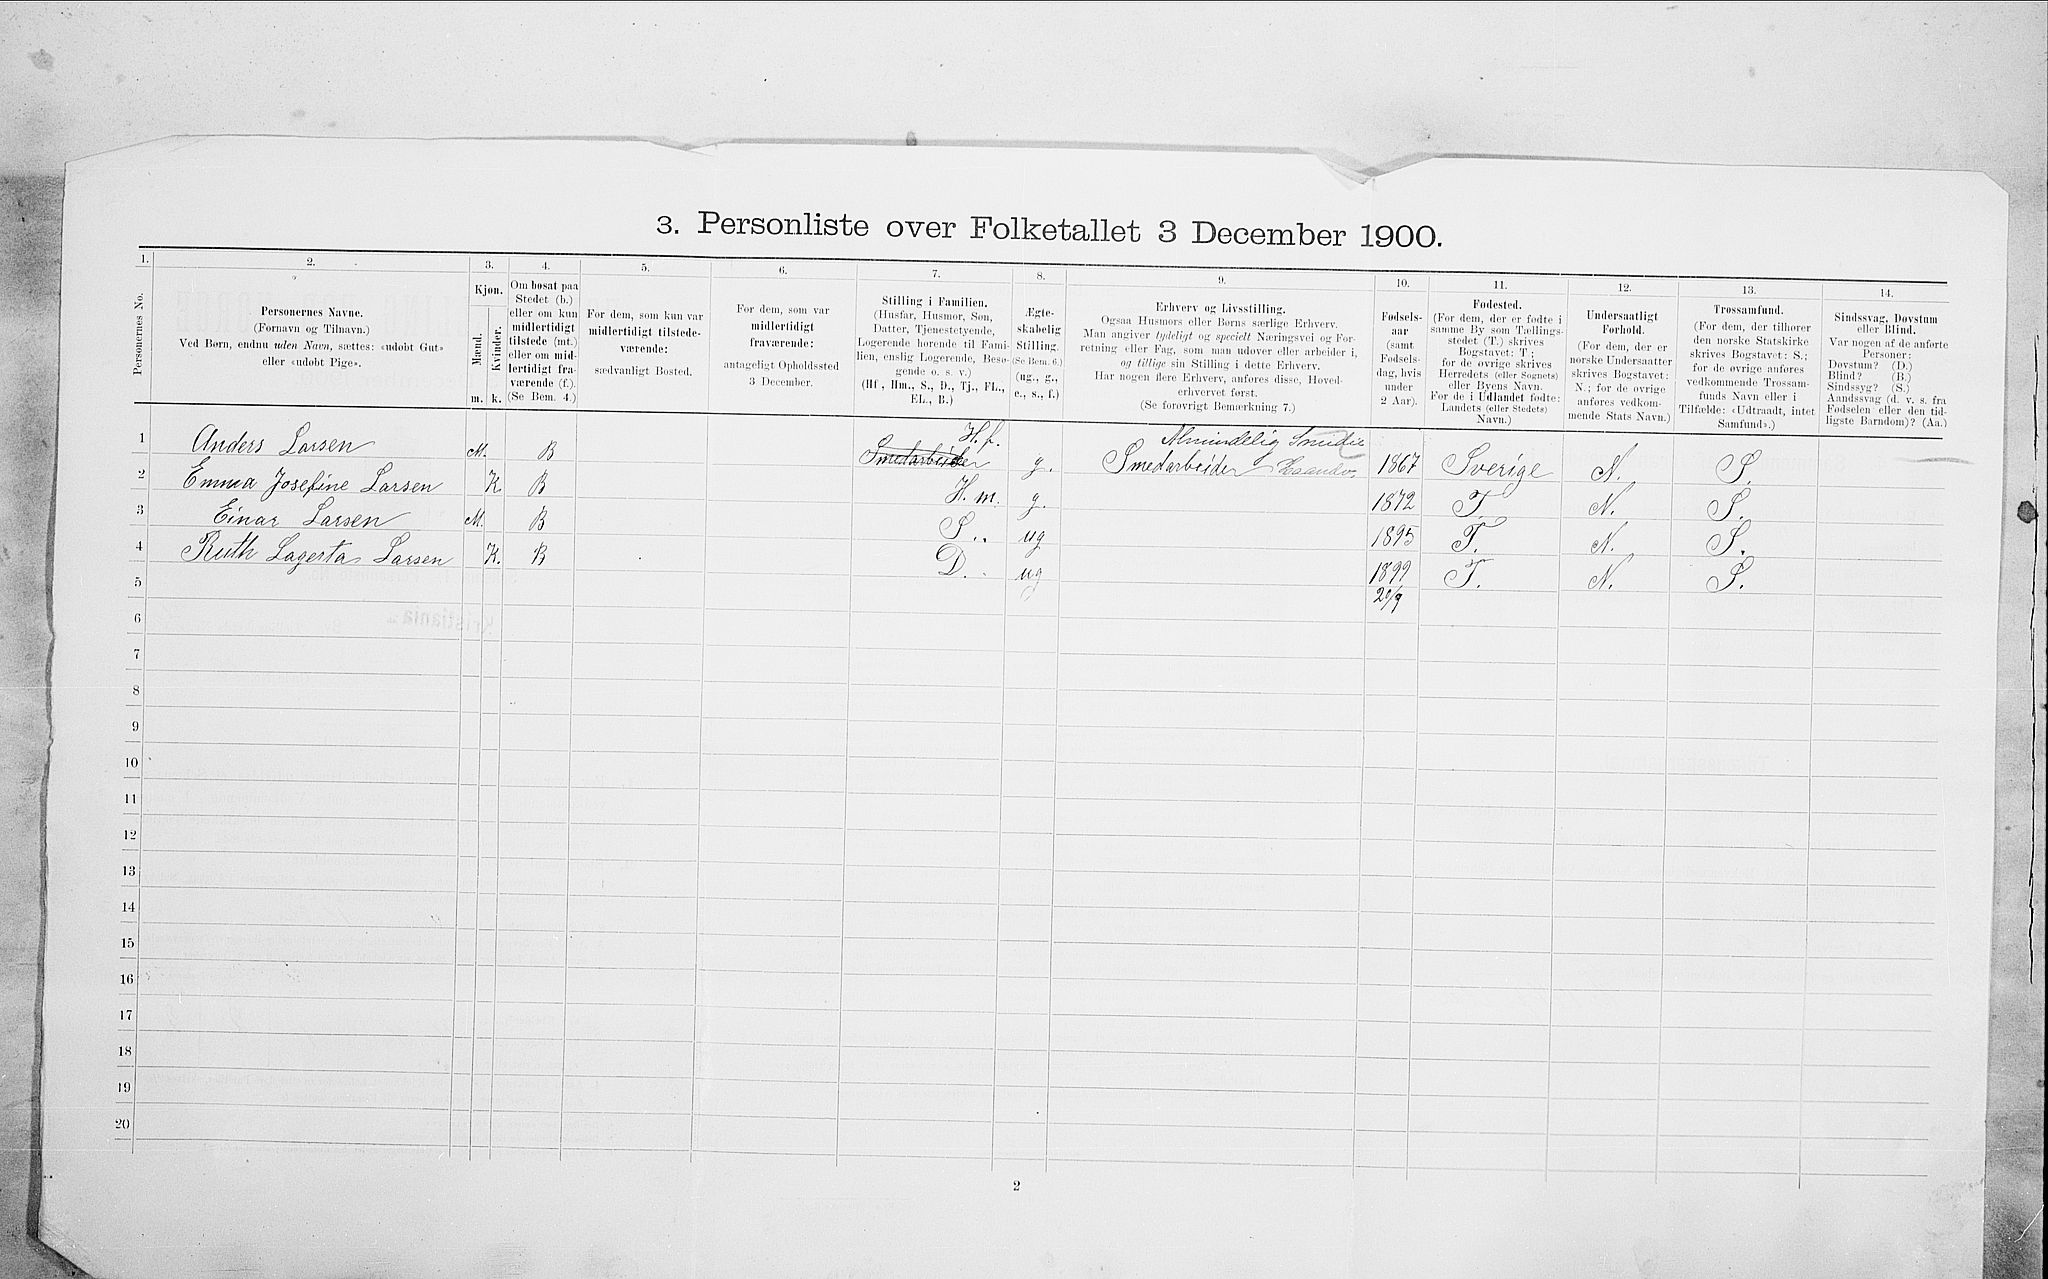 3. Personliste over Folketallet 3 December 1900.
1. 2. 3. 4. 5. 6. 7. 8. 9. 10. 11. 12. 13. 14.
Personernes No.
Personernes Navne.
(Fornavn og Tilnavn.)
Ved Børn, endnu uden Navn, sættes: «udøbt Gut»
eller «udøbt Pige».
Kjøn.
Mænd.
Kvinder.
m. k.
Om bosat paa
Stedet (b.)
eller om kun
midlertidigt
tilstede (mt.)
eller om mid-
lertidigt fra-
værende (f.).
(Se Bem. 4.)
For dem, som kun var
midlertidigt tilstede-
værende:
sædvanligt Bosted.
For dem, som var
midlertidigt
fraværende:
antageligt Opholdssted
3 December.
Stilling i Familien.
(Husfar, Husmor, Søn,
Datter, Tjenestetyende,
Logerende hørende til Fami-
lien, enslig Logerende, Besø-
gende o. s. v.)
(Hf., Hm., S., D., Tj., FL.,
EL., B.)
Ægte-
skabelig
Stilling.
(Se Bem. 6.)
(ug., g.,
e., s., f.)
Erhverv og Livsstilling.
Ogsaa Husmors eller Børns særlige Erhverv.
Man angiver tydeligt og specielt Næringsvei og For-
retning eller Fag, som man udøver eller arbeider i,
og tillige sin Stilling i dette Erhverv.
Har nogen flere Erhverv, anføres disse, Hoved-
erhvervet først.
(Se forøvrigt Bemærkning 7.)
Fødsels-
aar
(samt
Fødsels-
dag, hvis
under
2 Aar).
Fødested.
(For dem, der er fødte i
samme By som Tællings-
stedet (T.) skrives
Bogstavet: T;
for de øvrige skrives
Herredets (eller Sognets)
eller Byens Navn.
For de i Udlandet fødte:
Landets (eller Stedets)
Navn.)
Undersaatligt
Forhold.
(For dem, der er
norske Undersaatter
skrives Bogstavet:
N.; for de øvrige
anføres vedkom-
mende Stats Navn.)
Trossamfund.
(For dem, der tilhører
den norske Statskirke
skrives Bogstavet: S.;
for de øvrige anføres
vedkommende Trossam-
funds Navn eller i
Tilfælde: «Udtraadt, intet
Samfund».)
Sindssvag, Døvstum
eller Blind.
Var nogen af de anførte
Personer:
Døvstum? (D.)
Blind? (B.)
Sindssyg? (S.)
Aandssvag (d. v. s. fra
Fødselen eller den tid-
ligste Barndom)? (Aa.)
1 Anders Larsen M. B Smedarbeider H.f. g. Smedarbeider Almindelig Smedie Haandv. 1867 Sverige N. S.
2 Emma Josefine Larsen K. B H.m. g. 1872 T. N. S.
3 Einar Larsen M. B S.. ug 1895 T. N. S.
4 Ruth Lagerta Larsen K. B D. ug 1899 T. N. S.
5 20/9
6
7
8
9
10
11
12
13
14
15
16
17
18
19
20
2